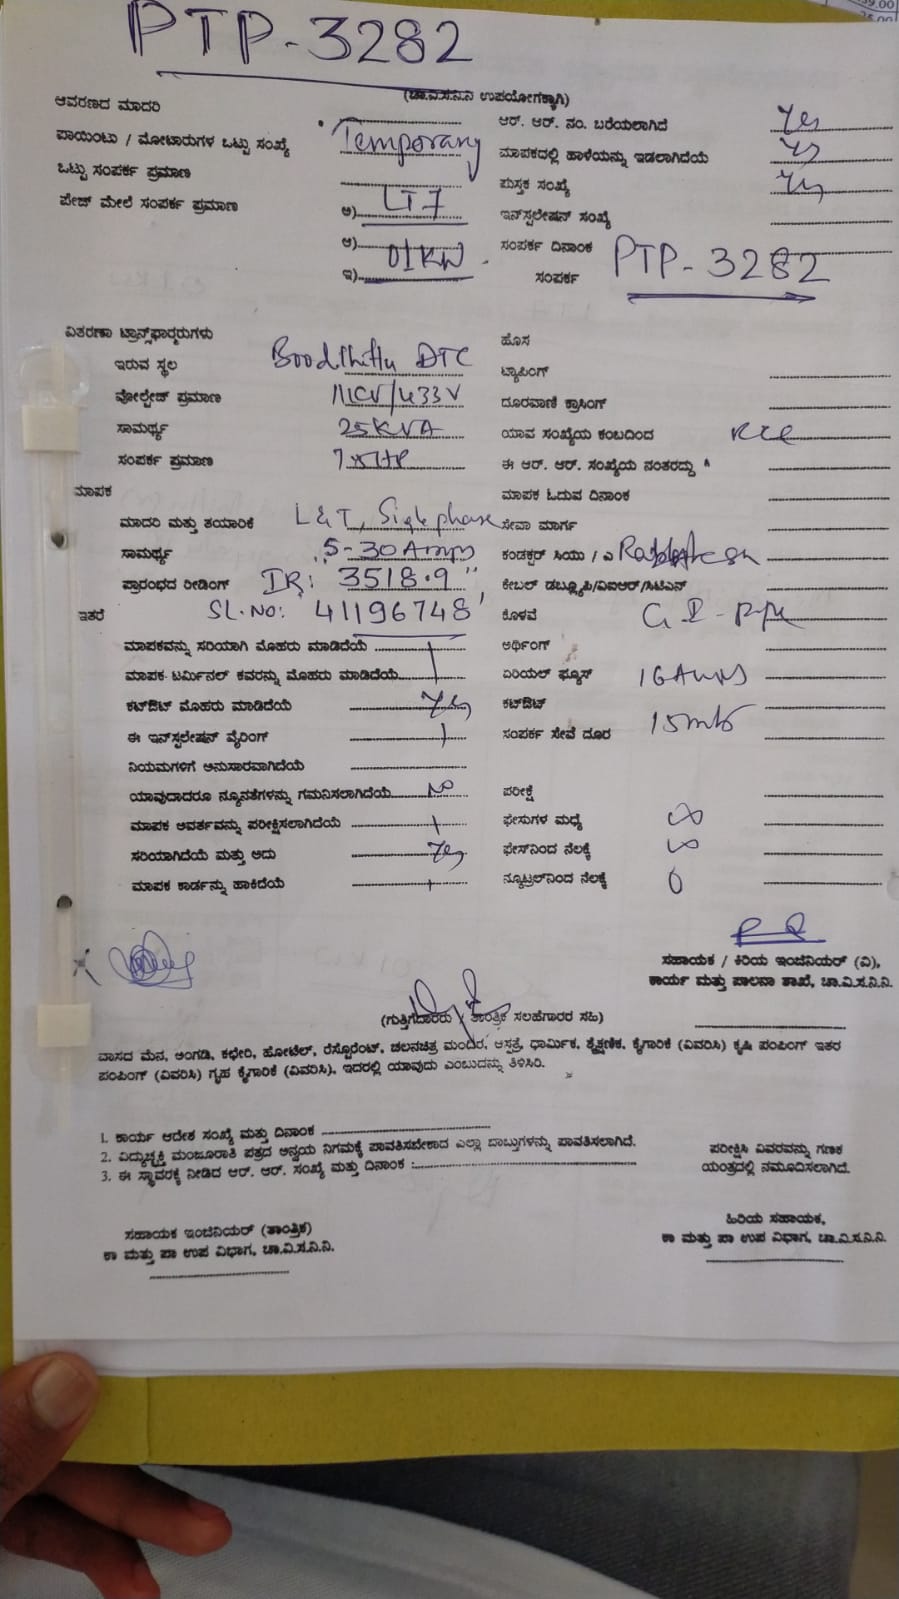 PTP-3282
(ಚಾ.ವಿ.ಸ.ನಿ.ನಿ ಉಪಯೋಗಕ್ಕಾಗಿ)
ಆವರಣದ ಮಾದರಿ
ಆರ್. ಆರ್. ನಂ. ಬರೆಯಲಾಗಿದೆ Yes
ಪಾಯಿಂಟು / ಮೋಟಾರುಗಳ ಒಟ್ಟು ಸಂಖ್ಯೆ Temporary
ಮಾಪಕದಲ್ಲಿ ಹಾಳೆಯನ್ನು ಇಡಲಾಗಿದೆಯೆ Yes
ಒಟ್ಟು ಸಂಪರ್ಕ ಪ್ರಮಾಣ
ಪುಸ್ತಕ ಸಂಖ್ಯೆ Yes
ಪೇಜ್ ಮೇಲೆ ಸಂಪರ್ಕ ಪ್ರಮಾಣ ಅ) LT7
ಇನ್‌ಸ್ಟಲೇಷನ್ ಸಂಖ್ಯೆ
ಆ) 01KW
ಸಂಪರ್ಕ ದಿನಾಂಕ
ಇ)
ಸಂಪರ್ಕ PTP-3282
ವಿತರಣಾ ಟ್ರಾನ್ಸ್‌ಫಾರ್‍ಮರುಗಳು
ಹೊಸ
ಇರುವ ಸ್ಥಲ DTC
ಟ್ಯಾಪಿಂಗ್
ವೋಲ್ಟೇಜ್ ಪ್ರಮಾಣ 11KV/433V
ದೂರವಾಣಿ ಕ್ರಾಸಿಂಗ್
ಸಾಮರ್ಥ್ಯ 25KVA
ಯಾವ ಸಂಖ್ಯೆಯ ಕಂಬದಿಂದ RCC
ಸಂಪರ್ಕ ಪ್ರಮಾಣ
ಈ ಆರ್. ಆರ್. ಸಂಖ್ಯೆಯ ನಂತರದ್ದು
ಮಾಪಕ
ಮಾಪಕ ಓದುವ ದಿನಾಂಕ
ಮಾದರಿ ಮತ್ತು ತಯಾರಿಕೆ L&T, Single phase
ಸೇವಾ ಮಾರ್ಗ
ಸಾಮರ್ಥ್ಯ 5-30 Amps
ಕಂಡಕ್ಟರ್ ಸಿಯು / ಎ
ಪ್ರಾರಂಭದ ರೀಡಿಂಗ್ IR: 3518.9
ಕೇಬಲ್ ಡಬ್ಲ್ಯೂಪಿ/ವಿಐಆರ್/ಸಿಟಿಎಸ್
ಇತರೆ SL.NO: 41196748
ಕೊಳವೆ G I - pipe
ಮಾಪಕವನ್ನು ಸರಿಯಾಗಿ ಮೊಹರು ಮಾಡಿದೆಯೆ
ಅರ್ಥಿಂಗ್
ಮಾಪಕ ಟರ್ಮಿನಲ್ ಕವರನ್ನು ಮೊಹರು ಮಾಡಿದೆಯೆ
ಏರಿಯಲ್ ಫ್ಯೂಸ್ 16Amps
ಕಟ್‌ಔಟ್ ಮೊಹರು ಮಾಡಿದೆಯೆ Yes
ಕಟ್‌ಔಟ್
ಈ ಇನ್‌ಸ್ಟಲೇಷನ್ ವೈರಿಂಗ್
ಸಂಪರ್ಕ ಸೇವೆ ದೂರ 15mts
ನಿಯಮಗಳಿಗೆ ಅನುಸಾರವಾಗಿದೆಯೆ
ಯಾವುದಾದರೂ ನ್ಯೂನತೆಗಳನ್ನು ಗಮನಿಸಲಾಗಿದೆಯೆ No
ಪರೀಕ್ಷೆ
ಮಾಪಕ ಆವರ್ತವನ್ನು ಪರೀಕ್ಷಿಸಲಾಗಿದೆಯೆ
ಫೇಸುಗಳ ಮಧ್ಯೆ ∞
ಸರಿಯಾಗಿದೆಯೆ ಮತ್ತು ಅದು Yes
ಫೇಸ್‌ನಿಂದ ನೆಲಕ್ಕೆ ∞
ಮಾಪಕ ಕಾರ್ಡನ್ನು ಹಾಕಿದೆಯೆ
ನ್ಯೂಟ್ರಲ್‌ನಿಂದ ನೆಲಕ್ಕೆ 0
ಸಹಾಯಕ / ಕಿರಿಯ ಇಂಜಿನಿಯರ್ (ವಿ),
ಕಾರ್ಯ ಮತ್ತು ಪಾಲನಾ ಶಾಖೆ, ಚಾ.ವಿ.ಸ.ನಿ.ನಿ.
(ಗುತ್ತಿಗೆದಾರರು / ತಾಂತ್ರಿಕ ಸಲಹೆಗಾರರ ಸಹಿ)
ವಾಸದ ಮನೆ, ಅಂಗಡಿ, ಕಛೇರಿ, ಹೋಟೆಲ್, ರೆಸ್ಟೋರೆಂಟ್, ಚಲನಚಿತ್ರ ಮಂದಿರ, ಆಸ್ಪತ್ರೆ, ಧಾರ್ಮಿಕ, ಶೈಕ್ಷಣಿಕ, ಕೈಗಾರಿಕೆ (ವಿವರಿಸಿ) ಕೃಷಿ ಪಂಪಿಂಗ್ ಇತರ
ಪಂಪಿಂಗ್ (ವಿವರಿಸಿ) ಗೃಹ ಕೈಗಾರಿಕೆ (ವಿವರಿಸಿ), ಇದರಲ್ಲಿ ಯಾವುದು ಎಂಬುದನ್ನು ತಿಳಿಸಿರಿ.
1. ಕಾರ್ಯ ಆದೇಶ ಸಂಖ್ಯೆ ಮತ್ತು ದಿನಾಂಕ
2. ವಿದ್ಯುಚ್ಛಕ್ತಿ ಮಂಜೂರಾತಿ ಪತ್ರದ ಅನ್ವಯ ನಿಗಮಕ್ಕೆ ಪಾವತಿಸಬೇಕಾದ ಎಲ್ಲಾ ಬಾಬ್ತುಗಳನ್ನು ಪಾವತಿಸಲಾಗಿದೆ.
3. ಈ ಸ್ಥಾವರಕ್ಕೆ ನೀಡಿದ ಆರ್. ಆರ್. ಸಂಖ್ಯೆ ಮತ್ತು ದಿನಾಂಕ :
ಪರೀಕ್ಷಿಸಿ ವಿವರವನ್ನು ಗಣಕ
ಯಂತ್ರದಲ್ಲಿ ನಮೂದಿಸಲಾಗಿದೆ.
ಸಹಾಯಕ ಇಂಜಿನಿಯರ್ (ತಾಂತ್ರಿಕ)
ಕಾ ಮತ್ತು ಪಾ ಉಪ ವಿಭಾಗ, ಚಾ.ವಿ.ಸ.ನಿ.ನಿ.
ಹಿರಿಯ ಸಹಾಯಕ,
ಕಾ ಮತ್ತು ಪಾ ಉಪ ವಿಭಾಗ, ಚಾ.ವಿ.ಸ.ನಿ.ನಿ.